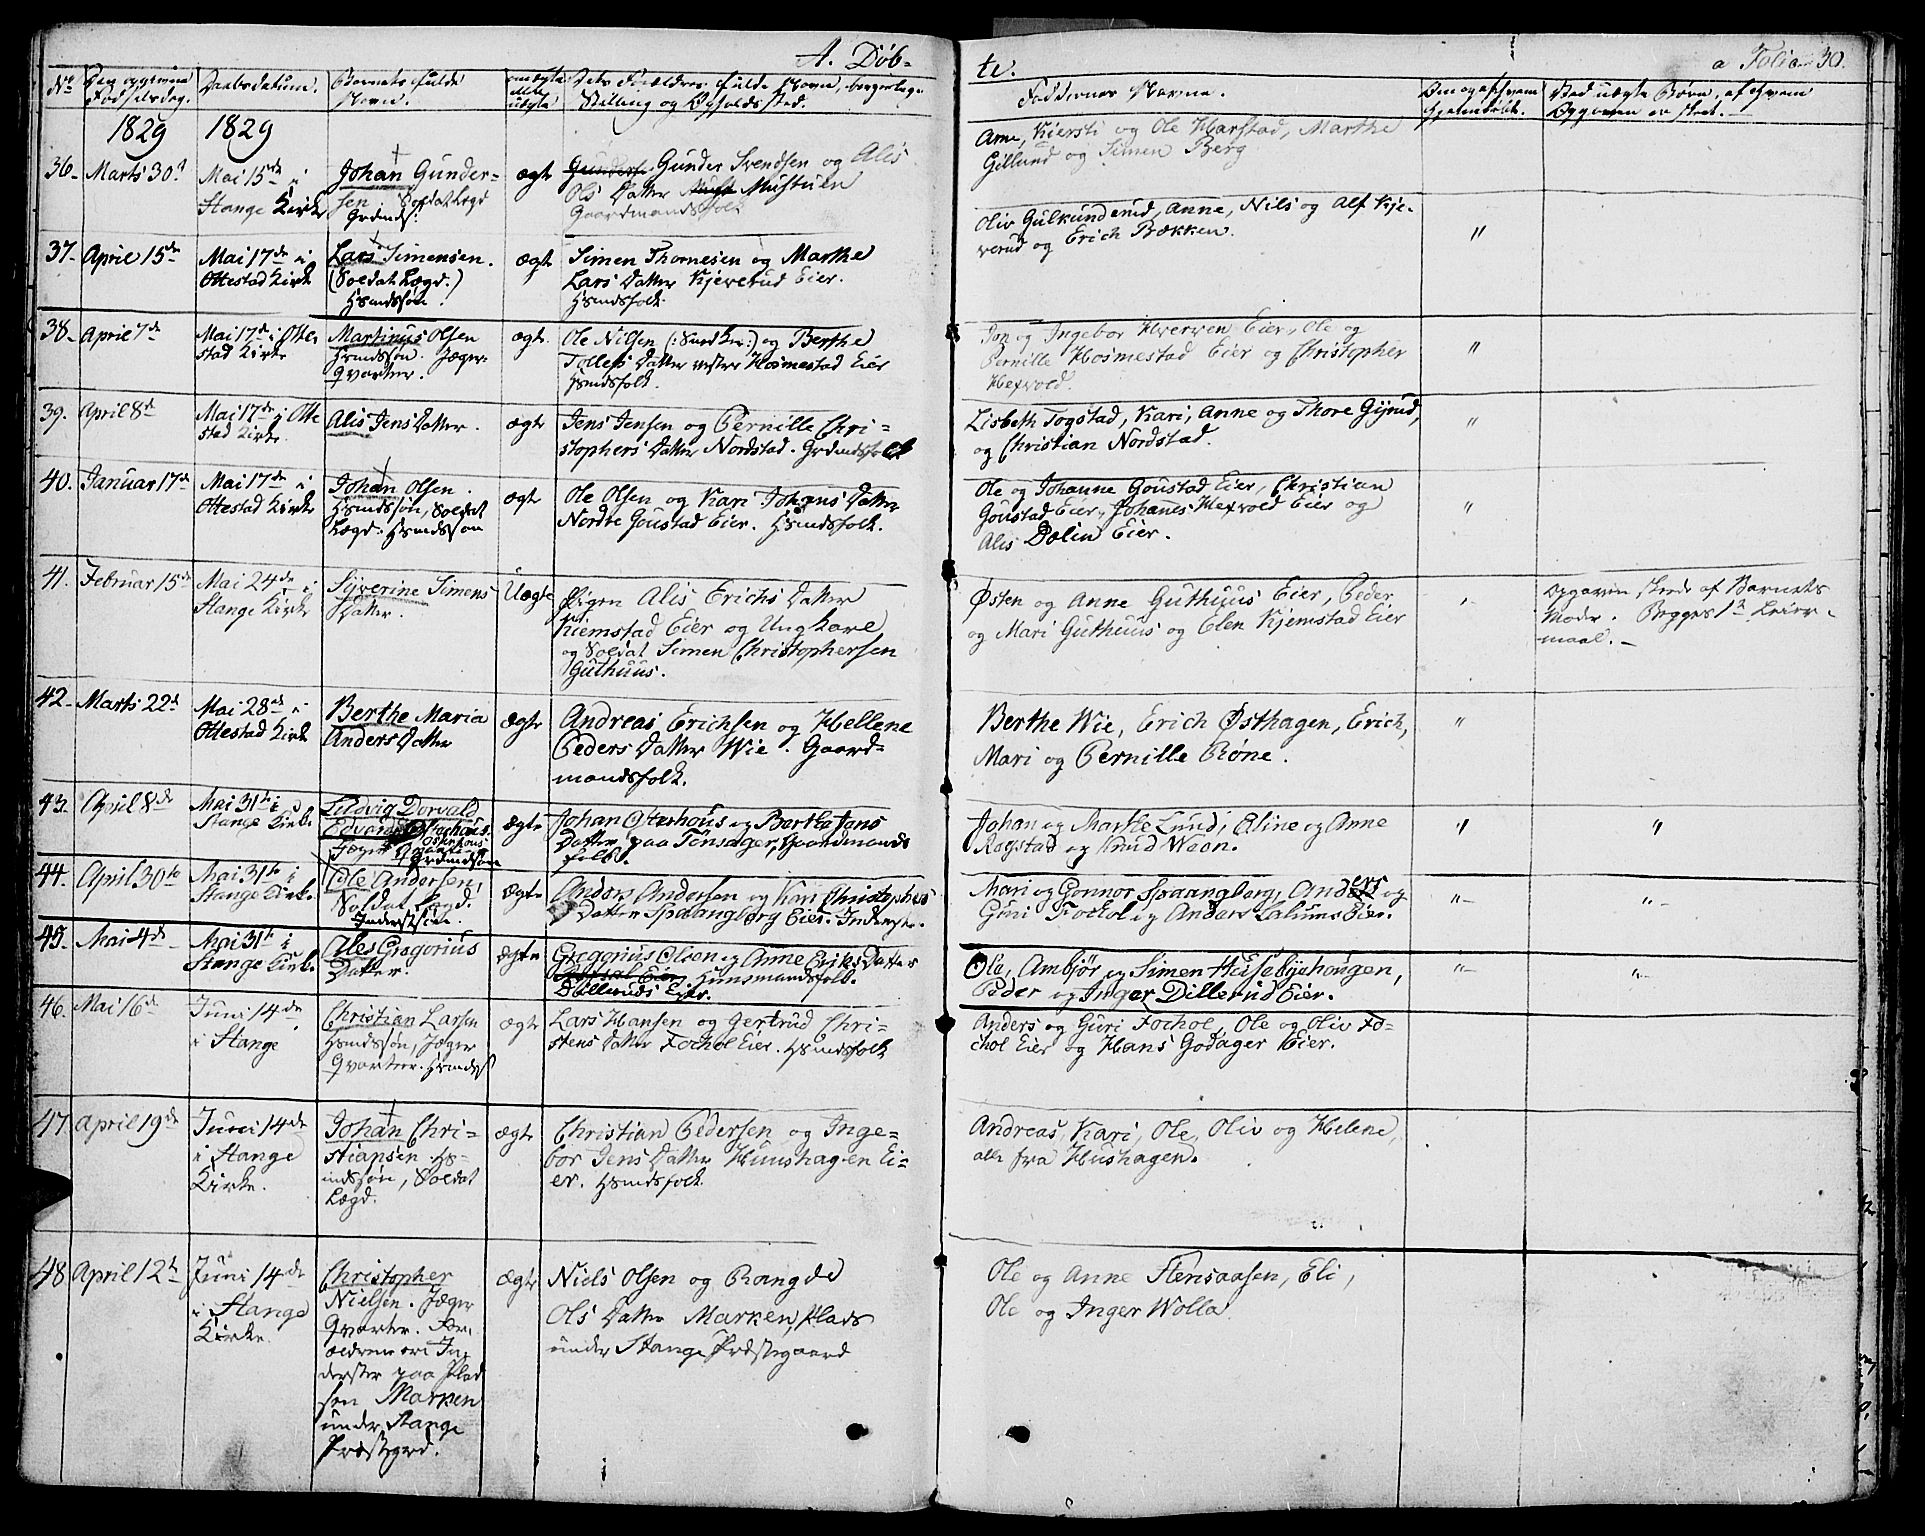 A. Døb-
te.
a Folio 30.
No
Den opgivne Fødselsdag.
Daabsdatum.
Barnets fulde Navn.
om ægte eller uægte
Navn, borgerlige Stilling og Opholdssted.
Faddernes Navne.
1829
1829
36.
Marts 30d
Mai 15de i
Stange Kirke
Johan Gunder-
sen. Soldat Lægd
ægte
Gunder Svendsen og Alis
Ols Datter Mustuen
Gaardmandsfolk
Arne, Kiersti og Ole Harstad, Marthe
Gillund og Simen Berg
37.
April 15de
Mai 17de i
Ottestad Kirke
Lars Simensen.
(Soldat Lægd.)
Hsmdssøn.
ægte
Simen Thornesen og Marthe
Lars Datter Kjeverud Eier.
Hsmdsfolk.
Oliv Gulkunderud, Anne, Nils og Alf Kje-
verud og Erich Bækken.
"
38.
April 7de
Mai 17de i Otte-
stad Kirke
Martinus Olsen
Hsmdssøn. Jæger
Qvarter.
ægte
Ole Nilsen og Berthe
Tollefs Datter vestre Hosmestad Eier
Hsmdsfolk.
Jon og Ingebor Hverven Eier, Ole og
Pernille Hosmestad Eier og Christopher
Hexvold.
"
39.
April 8de
Mai 17de i Otte
stad Kirke.
Alis Jens Datter.
ægte
Jens Jensen og Pernille Chri-
stophers Datter Nordstad. Grdmdsfolk
Lisbeth Togstad, Kari, Anne og Thore Gjrud,
og Christian Nordstad.
"
40.
Januar 17de
Mai 17de i
Ottestad Kirke
Johan Olsen.
Hsmdssøn, Soldat
Lægd. Hsmdssøn
ægte
Ole Olsen og Kari Johans Datter
Nordre Goustad Eier. Hsmdsfolk.
Ole og Johanne Goustad Eier, Christian
Goustad Eier, Johanes Hexvold Eier og
Alis Dælin Eier.
"
41.
Februar 15de
Mai 24de i
Stange Kirke
Syverine Simens
Datter.
Uægte
Pigen Alis Erichs Datter
Kiemstad Eier og Ungkarl
og Soldat Simen Christophersen
Guthuus.
Østen og Anne Guthuus Eier, Peder
og Mari Guthuus og Elen Kjemstad Eier
"
Opgaven skede af Barnets
Moder. Begges 1te Leier-
maal.
42.
Marts 22d
Mai 28de i
Ottestad Kirke
Berthe Maria
Anders Datter
ægte
Andreas Erichsen og Hellene
Peders Datter Wie. Gaard-
mandsfolk.
Berthe Wie, Erich Østhagen, Erich,
Mari og Pernille Røne.
"
43.
April 8de
Mai 31te i
Stange Kirke.
Ludvig Dorvald
Edvard Osterhous
Jæger
Grdmdssøn
ægte
Johan Osterhous og Berthe Jans
Datter paa Tønsager, Gaardmands
folk.
Johan og Marthe Lund, Eline og Anne
Rogstad og Knud Waan.
"
"
44.
April 30te
Mai 31te i
Stange Kirke.
Ole Andersen,
Soldat Lægd.
Inderstsøn.
ægte
Anders Andersen og Kari Christophers
Datter Spaangberg Eier. Inderste.
Mari og Gonnor Spaangberg, Anders og
Guri Fochol og Anders Lalums Eier.
"
"
45.
Mai 4de
Mai 31te i
Stange Kirke.
Ales Gregorius
Datter.
ægte
Gregorius Olsen og Anne Eriks Datter
Huusmandsfolk.
Dilleruds Eier.
Ole, Ambjør og Simen Husebyehougen,
Peder og Inger Dillerud Eier.
"
"
46.
Mai 16de
Juni 14de
i Stange
Christian Larsen
Hsmdssøn, Jæger
Qvarter.
ægte
Lars Hansen og Gertrud Chri-
stens Datter Fochol Eier. Hsmdsfolk
Anders og Guri Fochol, Ole og Oliv Fo-
chol Eier og Hans Godager Eier.
47.
April 19de
Juni 14de
i Stange
Kirke.
Johan Chri-
stiansen. Hs-
mdssøn, Soldat
Lægd.
ægte
Christian Pedersen og Inge-
bor Jens Datter Huushagen Ei-
er. Hsmdsfolk
Andreas, Kari, Ole, Oliv og Helene,
alle fra Hushagen.
48
April 12te
Juni 14de
i Stange
Kirke.
Christopher
Nielsen. Jæger
Qvarter. For-
ældrene ere In-
derster paa Plad
sen Marken
under Stange
Præstegrd.
ægte
Niels Olsen og Rangde
Ols Datter Marken, Plads
under Stange Præstegaard
Ole og Anne Stensaasen, Eli,
Ole og Inger Wolla